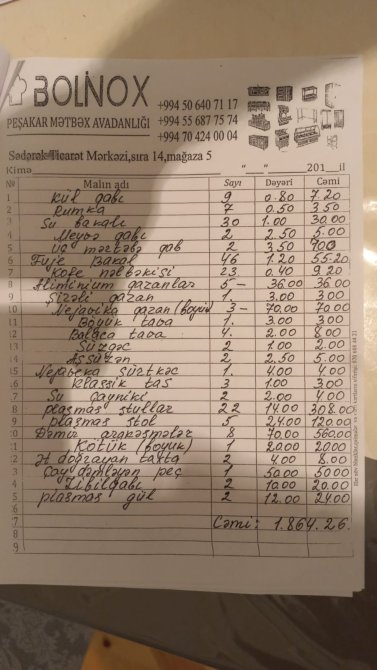 BOLİNOX
PEŞAKAR MƏTBƏX AVADANLIĞI
+994 50 640 71 17
+994 55 687 75 74
+994 70 424 00 04
Sədərək Ticarət Mərkəzi,sıra 14,mağaza 5
Kimə "__"__ 201__il
№ Malın adı Sayı Dəyəri Cəmi
1 Kül qabı 9 0.80 7.20
2 Rumka 7 0.50 3.50
3 Su bakalı 30 1.00 30.00
4 Meyvə qabı 2 2.50 5.00
5 Üç mərtəbə qab 2 3.50 7.00
6 Fuje bakal 46 1.20 55.20
7 Kofe nəlbəkisi 23 0.40 9.20
8 Aliminium qazanlar 5 - 36.00 36.00
9 Şirəli qazan 1. 3.00 3.00
10 Nejavejka qazan (böyük) 3 - 70.00 70.00
11 Böyük tava 1. 3.00 3.00
12 Balaca tava 4. 2.00 8.00
13 Süzgəc 2 1.00 2.00
14 Aşsüzən 2 2.50 5.00
15 Nejavejka sürtkəc 1 4.00 4.00
6 Klassik tas 3 1.00 3.00
7 Su çayniki 2 2.00 4.00
8 plasmas stullar 22 14.00 308.00
9 plasmas stol 5 24.00 120.00
0 Dəmir arakəsmələr 8 70.00 560.00
1 Kötük (böyük) 1 20.00 20.00
2 Ət doğrayan taxta 2 4.00 8.00
3 Çay dəmləyən peç 1 50.00 50.00
4 Zibilqabı 2 10.00 20.00
5 plasmas gül 2 12.00 24.00
7 Cəmi: 1.864.26.
8
9